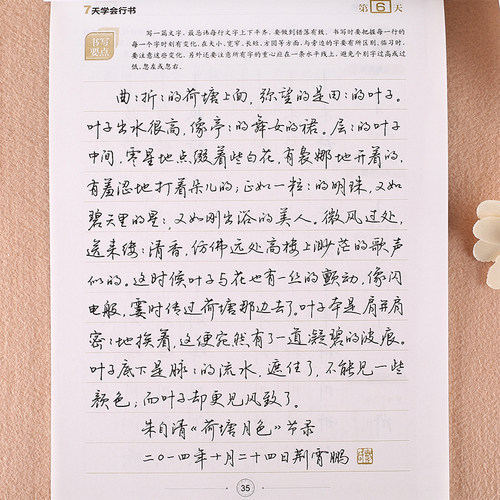 7天学会行书
第6天
书写要点
写一篇文字，最忌讳每行文字上下平齐，要做到错落有致。书写时要把握每一行的
每一个字时刻有变化，在大小、宽窄、长短、方圆等方面，与旁边的字要有所区别，临习时，
要注意这些变化。另外还要注意所有字的重心应在一条水平线上，避免个别字过高或过
低、忽左或忽右。
曲:折:的荷塘上面，弥望的是田:的叶子。
叶子出水很高，像亭:的舞女的裙。层:的叶子
中间，零星地点缀着些白花，有袅娜地开着的，
有羞涩地打着朵儿的；正如一粒:的明珠，又如
碧天里的星:，又如刚出浴的美人。微风过处，
送来缕:清香，仿佛远处高楼上渺茫的歌声
似的。这时候叶子与花也有一丝的颤动，像闪
电般，霎时传过荷塘那边去了。叶子本是肩并肩
密:地挨着，这便宛然有了一道凝碧的波痕。
叶子底下是脉:的流水，遮住了，不能见一些
颜色；而叶子却更见风致了。
朱自清《荷塘月色》节录
二〇一四年十月二十四日荆霄鹏
35